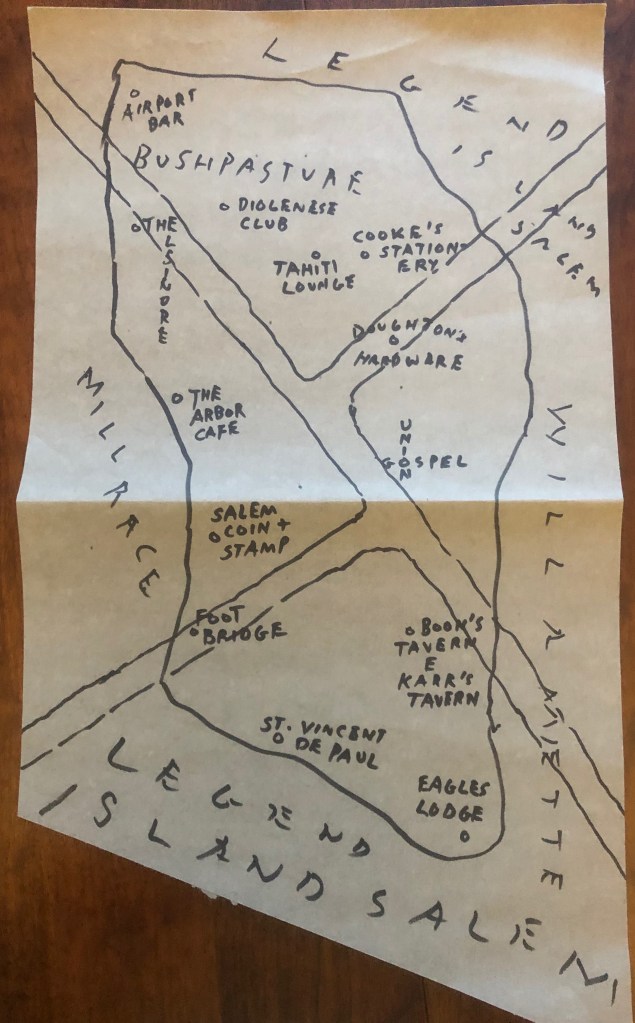 LEGEND
ISLAND
SALEM
AIRPORT
BAR
BUSHPASTURE
DIOLENESE
CLUB
THE
ELSINORE
COOKE'S
STATION-
ERY
TAHITI
LOUNGE
DOUGHTON'S
HARDWARE
THE
ARBOR
CAFE
MILL RACE
UNION
GOSPEL
WILLAMETTE
SALEM
COIN +
STAMP
FOOT
BRIDGE
BOON'S
TAVERN
E
KARR'S
TAVERN
ST. VINCENT
DE PAUL
EAGLES
LODGE
LEGEND
ISLAND SALEM